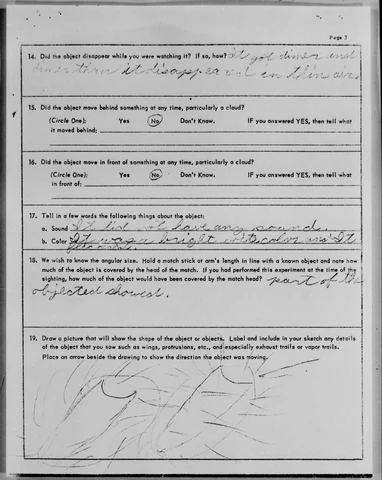 Page 3
14. Did the object disappear while you were watching it? If so, how? It got dimer and
dimer then it disappeared in thin air.
15. Did the object move behind something at any time, particularly a cloud?
(Circle One): Yes No Don't Know. IF you answered YES, then tell what
it moved behind:
16. Did the object move in front of something at any time, particularly a cloud?
(Circle One): Yes No Don't Know. IF you answered YES, then tell what
in front of:
17. Tell in a few words the following things about the object:
a. Sound It did not have any sound.
b. Color It was a bright
18. We wish to know the angular size. Hold a match stick at arm's length in line with a known object and note how
much of the object is covered by the head of the match. If you had performed this experiment at the time of the
sighting, how much of the object would have been covered by the match head? part of the
objected showed.
19. Draw a picture that will show the shape of the object or objects. Label and include in your sketch any details
of the object that you saw such as wings, protrusions, etc., and especially exhaust trails or vapor trails.
Place an arrow beside the drawing to show the direction the object was moving.